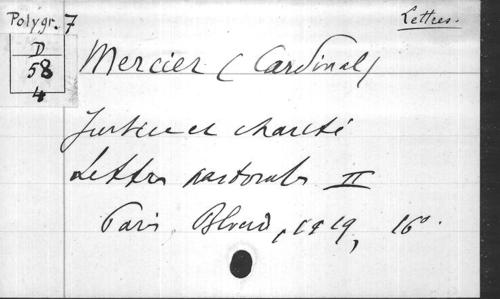 Polygr. 7
Lettres.
D
58
4
Mercier (Cardinal)
Justice et charité
Lettres pastorales II
Paris, Bloud, 1919, 16°.